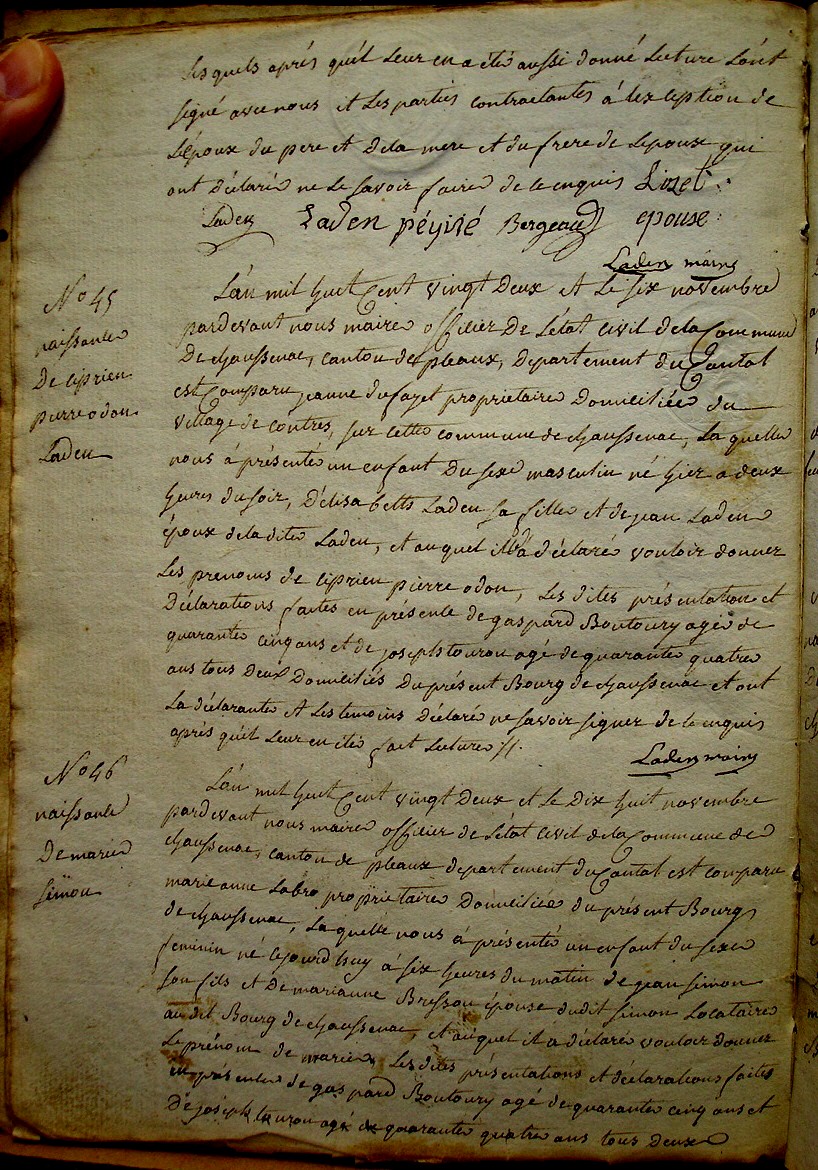 lesquels aprés quil leur en a été aussi donné lecture l'ont
signé avec nous et les parties contractantes à lexception de
L'époux du pere et dela mere et du frere de lepoux qui
ont déclaré ne le savoir faire de ce enquis Lizet
Laden Laden péyrié Bergeaud epouse
Laden maire
N° 45
naissance
De ciprien
pierre odon
Laden
L'an mil huit Cent vingt Deux et le six novembre
pardevant nous maire officier De L'état Civil dela Commune
De chaussenac, canton de pleaux, Departement du Cantal
est Comparu jeanne dufayet proprietaire Domiciliée du
village de contres, sur cette commune de chaussenac, La quelle
nous à présenté un enfant Du sexe masculin né hier a deux
heures du soir, D'élisabeth Laden sa fille et de jean Laden
époux dela dite Laden, et auquel illa déclaré vouloir donner
Les prenoms de ciprien pierre odon, Les dites présentation et
Déclarations faites en présence de gaspard Boutoury agé de
quarante cinq ans et de joseph tourou agé de quarante quatre
ans tous Deux Domiciliés Du présent Bourg de chaussenac et ont
La déclarante et Les temoins Déclaré ne savoir signer de ce enquis
aprés quil Leur en été fait Lecture //.
Laden maire
N° 46
naissance
De marie
simon
L'an mil huit Cent vingt Deux et Le Dix huit novembre
pardevant nous maire officier de L'état Civil dela Commune de
chaussenac, canton de pleaux departement du Cantal est comparu
marie anne Labro propriétaire Domiciliée du présent Bourg
de chaussenac, La quelle nous à présenté un enfant du sexe
feminin né cejourd huy à six heures du matin de jean simon
son fils et De marianne Bressou épouse dudit simon Locataire
au dit Bourg de chaussenac, et auquel il à déclaré vouloir donner
Le prénom de marie, Les dites présentations et déclarations faites
en présence de gaspard Boutoury agé de quarante cinq ans et
De joseph tourou agé de quarante quatre ans tous Deux